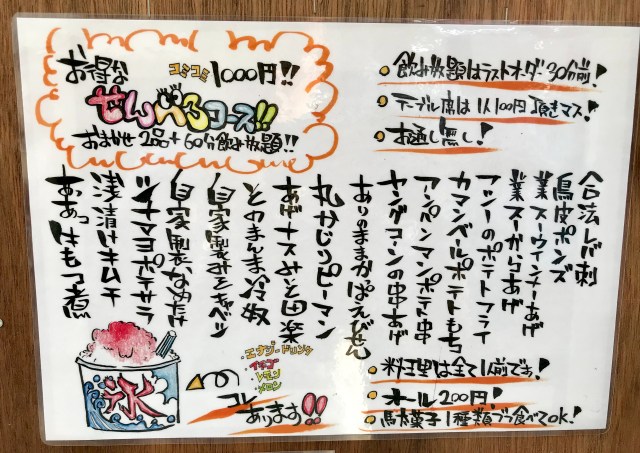 お得な コミコミ 1000円!!
せんべろコース!!
おまかせ2品+60分飲み放題!!
飲み放題はラストオーダー30分前!
テーブル席は1人100円頂きマス!
お通し無し!
合法レバ刺
鳥皮ポンズ
業スーウインナーあげ
業スーからあげ
アツシーのポテトフライ
カマンベールポテトもち
アンパンマンポテト串
ヤングコーンの串あげ
ありのままかぱえびせん
丸かじりピーマン
あげナスみそ田楽
とのまんま冷奴
自家製みそキャベツ
自家製なめたけ
ツナマヨポテサラ
浅漬けキムチ
あぁっはもつ煮
料理は全て1人前です!
オール200円!
駄菓子1種類ずつ食べてOK!
エナジードリンク
イチゴ
レモン
メロン
コレ
あります!!
氷